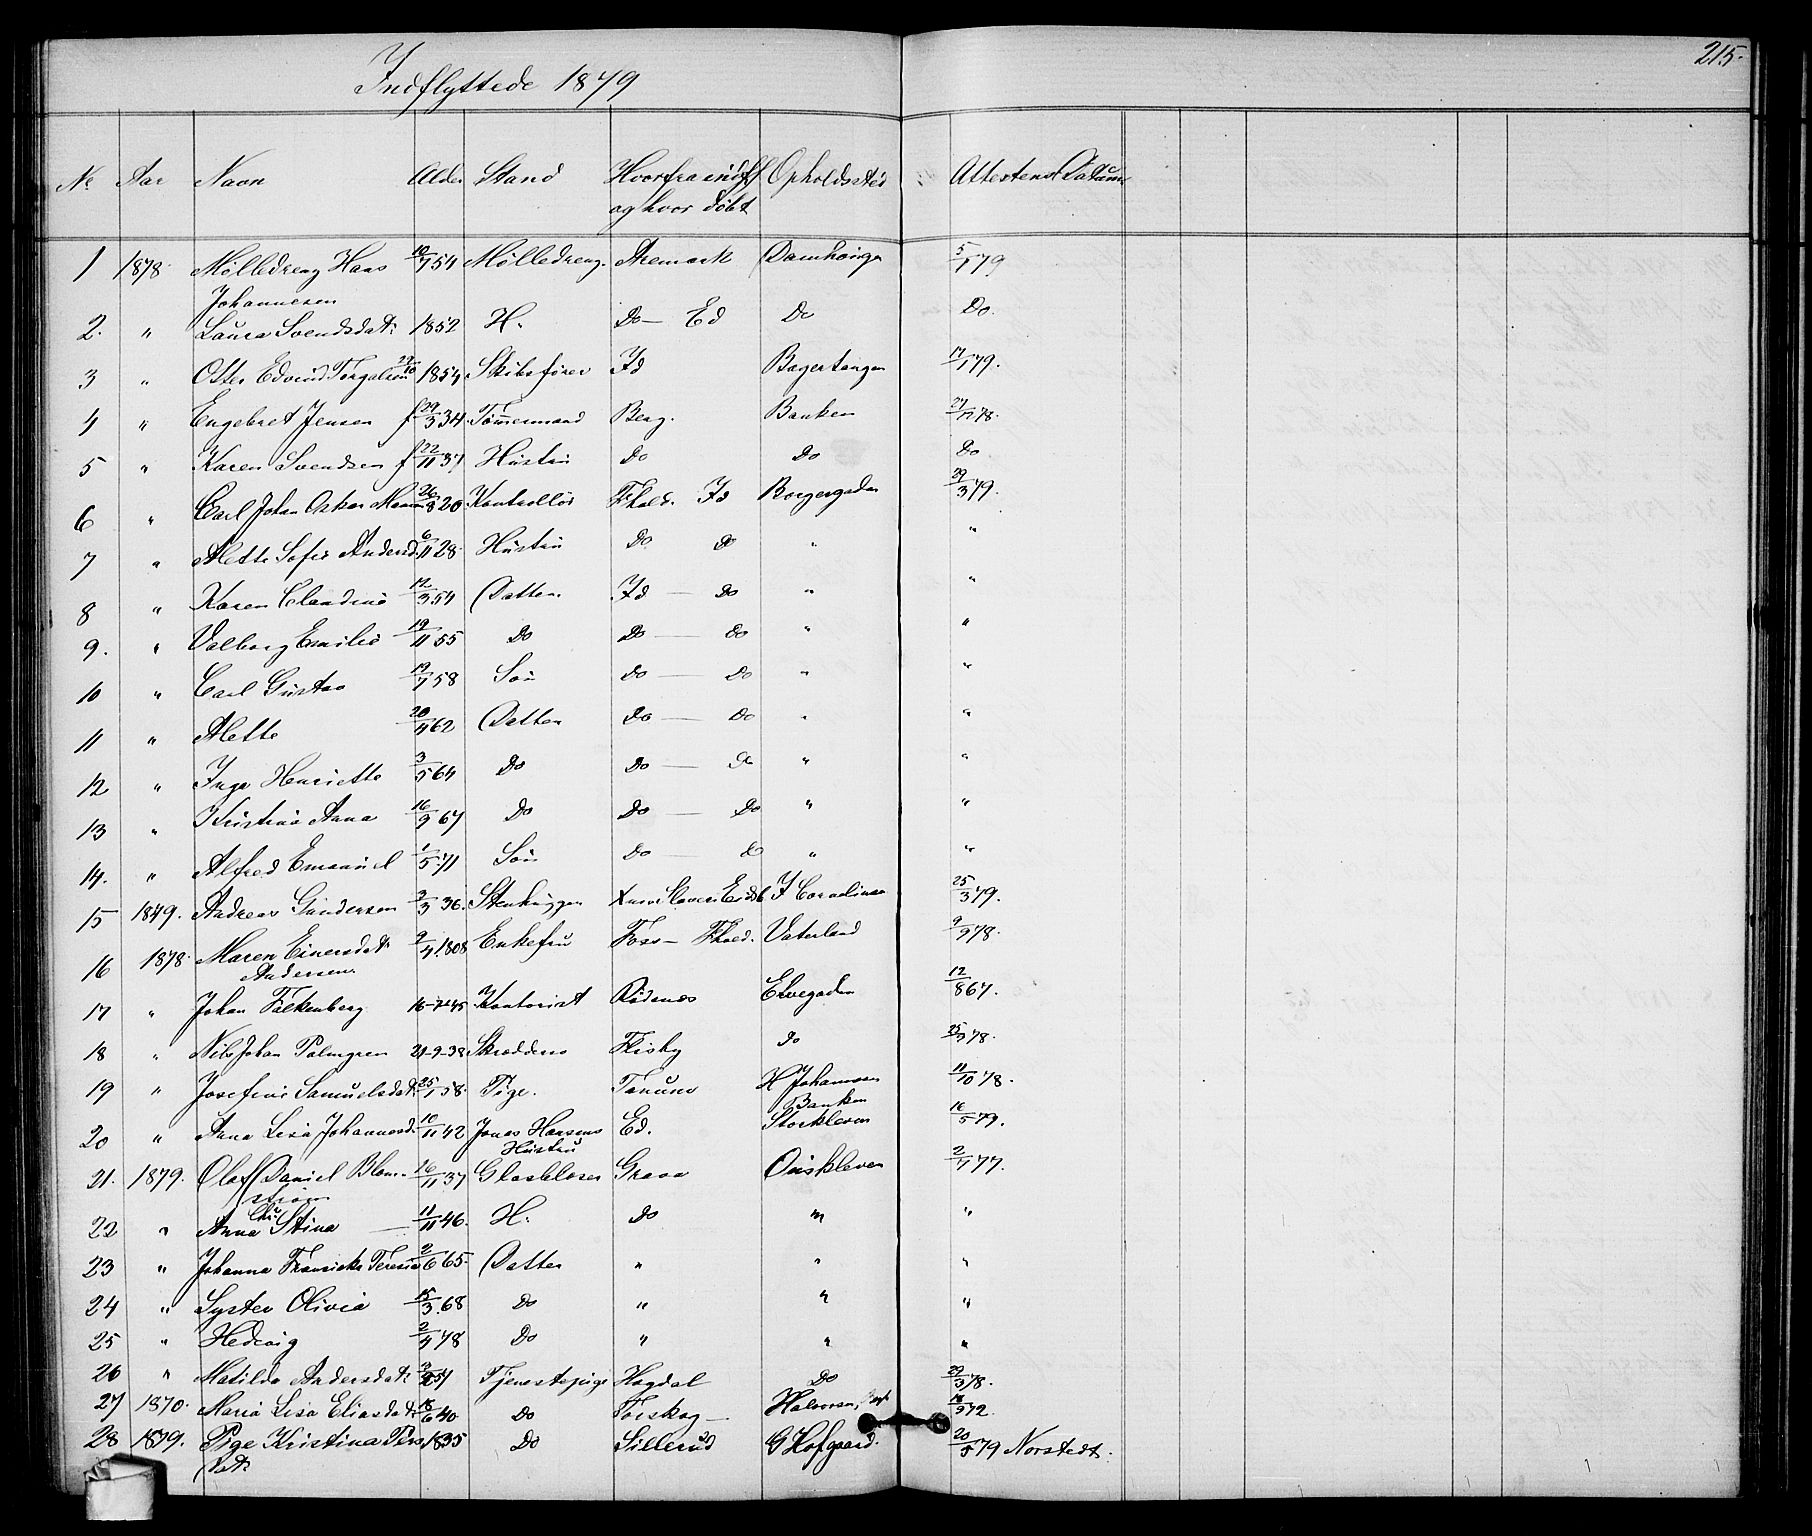 215.
Indflyttede 1879
No Aar Navn Alder Stand Hvorfra indfl. Opholdssted Attestens Datum
og hvor døbt
1 1878 Mølledreng Hans 10/7 54 Mølledreng. Aremark Damhaugen 5/1 79
Johannesen
2. " Laura Svendsdatr 1852 H. Do — Ed Do Do.
3 " Edvind 1854 Skibsfører Id Bagertangen 17/1 79.
4 " Engebret Jensen f 29/3 34. Tømmermand Berg. Banken 27/12 78.
5 " Karen Svendsen f 22/11 37 Hustru Do Do Do
6 " Carl Johan Oskar 26/8 20 Kontrollør Fhald. Id Borgergaden 29/3 79.
7 " Mette Sofie Andersd. 6/11 28. Hustru Do. Do " "
8 " Karen Claudine 12/3 54 Datter Id — Do " "
9. " Valborg Emilie 19/11 55 Do Do — Do " "
10 " Carl Gustav 19/7 58 Søn Do — Do " "
11 " Mette 20/4 62 Datter Do — Do " "
12 " Inga Henriette 3/5 64 Do Do — Do " "
13 " Kristine Anna 16/9 67 Do Do — Do " "
14. " Alfred Emanuel 1/5 71 Søn Do — Do " "
15 1879. Andreas Gundersen 3/3 36. Stenhugger 25/3 79.
16 1878. Maren Einersdatr 9/4. 1808 Enkefru Foss — Fhald. Vaterland 9/9 78.
Andersen
17 " Johan Falkenberg 16-7-45 Kontorist Rødenes Elvegaden 12/8 67.
18 " Nils Johan Palmgren 21-9-38 Skrædder Flisby do 25/3 78.
19 " Josefine Samuelsdatr 25/1 58. Pige. Tanum H Johansen 11/10 78.
Banken
20 " Anna Lisa Johannesd. 10/11 42 Jonas Hansens Ed. Storkleven 16/5 79.
Hustru
21. 1879. Olaf Daniel Blom- 16/11 37 Glasblæser Grava Ouskleven 2/7 77.
strøm
22 " Anna Chr: Stina — 11/11 46. H. do " "
23 " Johanna Teresia 2/6 65. Datter " " "
24 " Syster Olivia 15/3. 68 Do " " "
25 " Hedvig 2/4 78 Do " " "
26 " Matilda Andersdatr Tjenestepige Hogdal Do 29/3 78.
27 1870. Maria Lisa Eliasdatr 18/6 40 Do Torskog — Halvorsen, 18/5 72.
28 1879. Pige Kristina Pers 1835 Do Sillerud G Hofgaard. 20/5 79 Norstedt.
datr